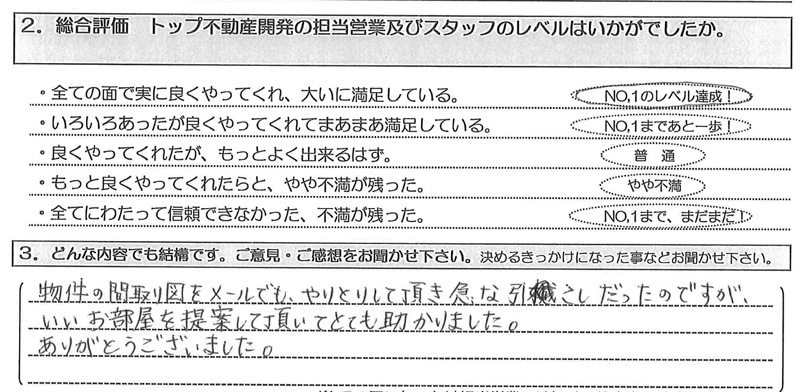 2．総合評価　トップ不動産開発の担当営業及びスタッフのレベルはいかがでしたか。
・全ての面で実に良くやってくれ、大いに満足している。　NO,1のレベル達成！
・いろいろあったが良くやってくれてまあまあ満足している。　NO,1まであと一歩！
・良くやってくれたが、もっとよく出来るはず。　普　通
・もっと良くやってくれたらと、やや不満が残った。　やや不満
・全てにわたって信頼できなかった、不満が残った。　NO,1まで、まだまだ！
3．どんな内容でも結構です。ご意見・ご感想をお聞かせ下さい。決めるきっかけになった事などお聞かせ下さい。
物件の間取り図をメールでも、やりとりして頂き急な引越こしだったのですが、
いいお部屋を提案して頂いてとても助かりました。
ありがとうございました。